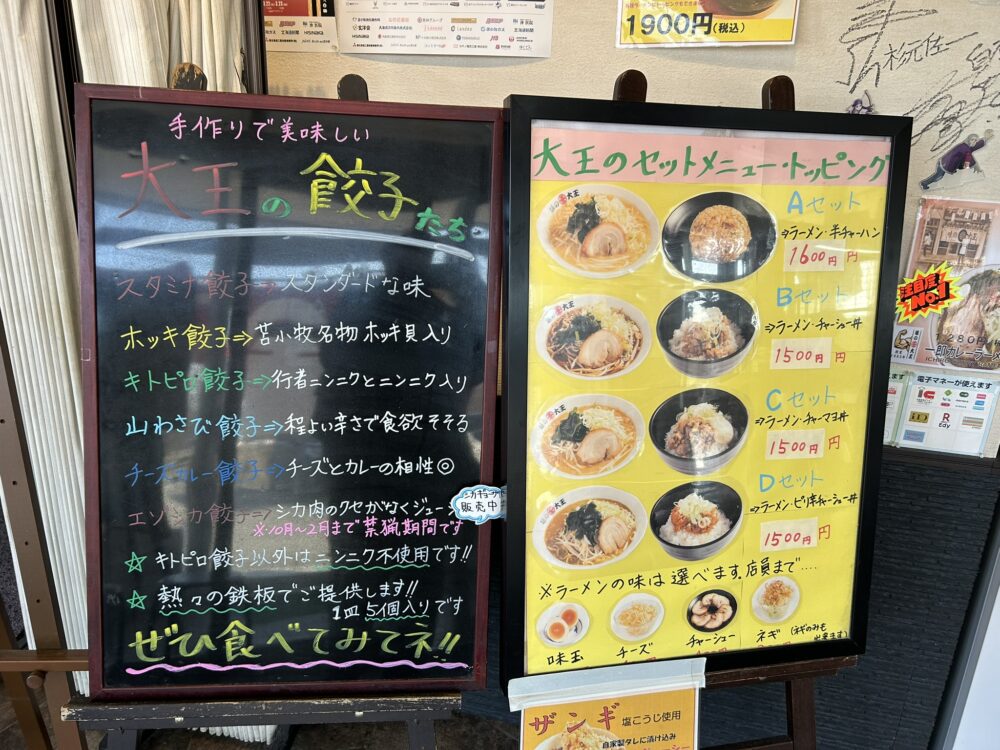 手作りで美味しい
大王の餃子たち
スタミナ餃子⇒スタンダードな味
ホッキ餃子⇒苫小牧名物ホッキ貝入り
キトピロ餃子⇒行者ニンニクとニンニク入り
山わさび餃子⇒程よい辛さで食欲そそる
チーズカレー餃子⇒チーズとカレーの相性◎
エゾシカ餃子⇒シカ肉のクセがなくジューシ
※10月〜2月まで禁猟期間です
販売中
☆キトピロ餃子以外はニンニク不使用です!!
☆熱々の鉄板でご提供します!!
1皿5個入りです
ぜひ食べてみてネ!!
1900円(税込)
大王のセットメニュー・トッピング
Aセット
⇒ラーメン・半チャーハン
1600円 円
Bセット
⇒ラーメン・チャーシュー丼
1500円 円
Cセット
⇒ラーメン・チャーマヨ丼
1500円 円
Dセット
⇒ラーメン・ピリ辛チャーシュー丼
1500円 円
※ラーメンの味は選べます。店員まで....
味玉
チーズ
チャーシュー
ネギ
(ネギのみも出来ます)
ザンギ 塩こうじ使用
自家製タレに漬け込み
注目度
No.1
電子マネーが使えます
Edy